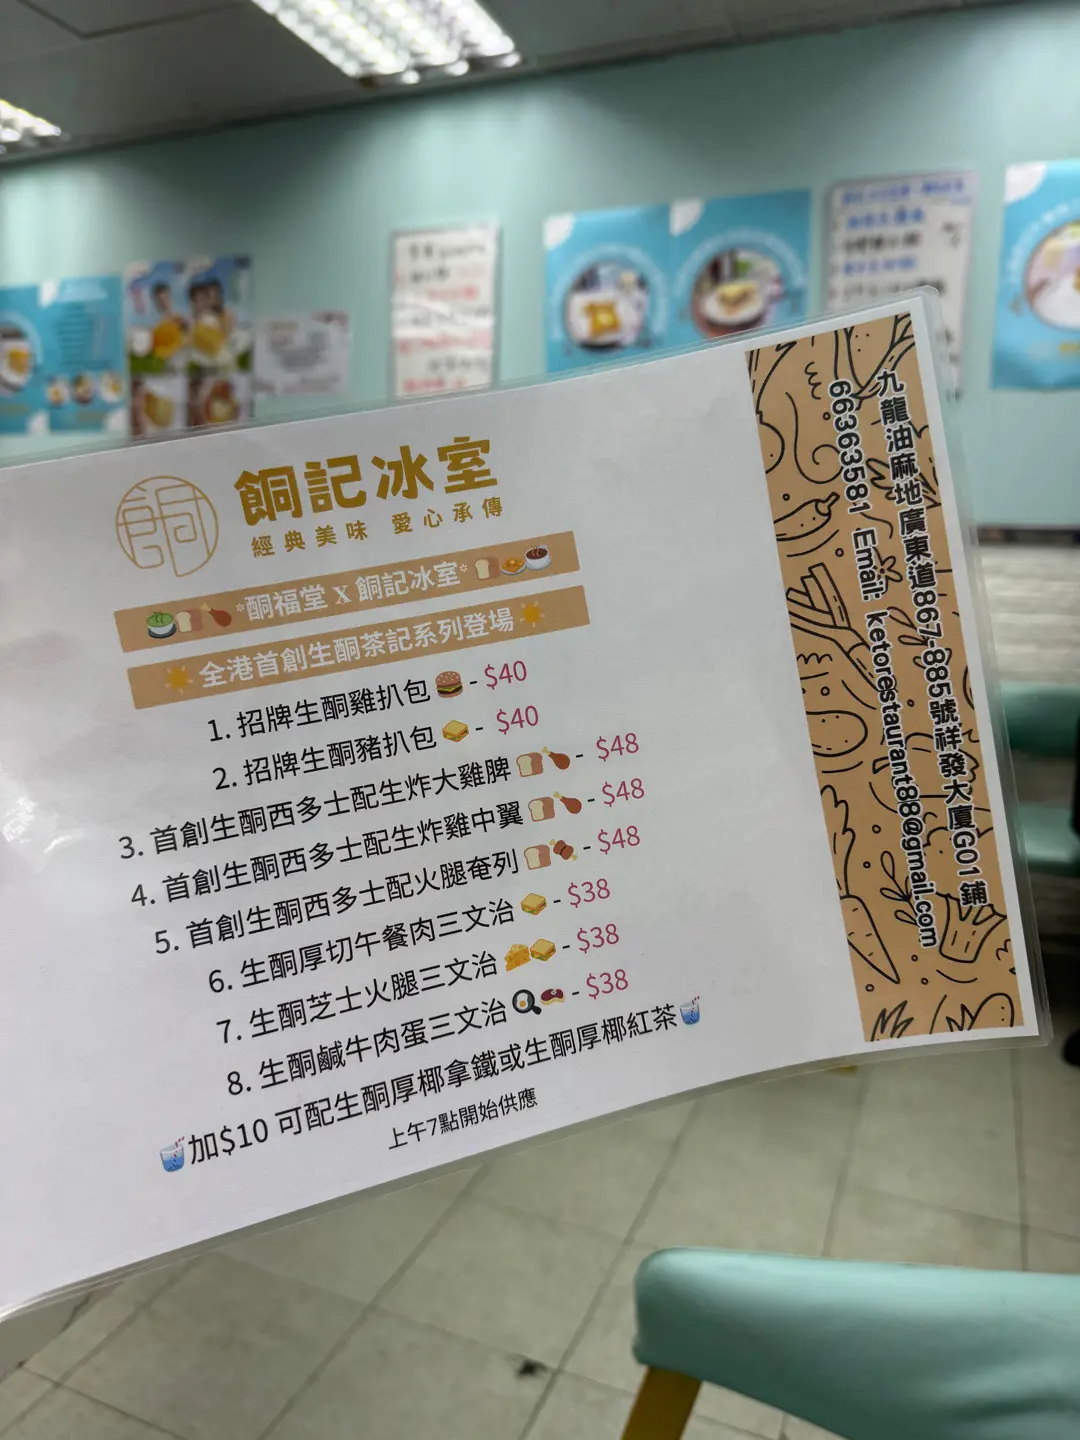 餇記冰室
經典美味 愛心承傳
*酮福堂 X 餇記冰室*
全港首創生酮茶記系列登場
1. 招牌生酮雞扒包 - $40
2. 招牌生酮豬扒包 - $40
3. 首創生酮西多士配生炸大雞脾 - $48
4. 首創生酮西多士配生炸雞中翼 - $48
5. 首創生酮西多士配火腿奄列 - $48
6. 生酮厚切午餐肉三文治 - $38
7. 生酮芝士火腿三文治 - $38
8. 生酮鹹牛肉蛋三文治 - $38
加$10 可配生酮厚椰拿鐵或生酮厚椰紅茶
上午7點開始供應
九龍油麻地廣東道867-885號祥發大廈G01鋪
66363581 Email: ketorestaurant88@gmail.com